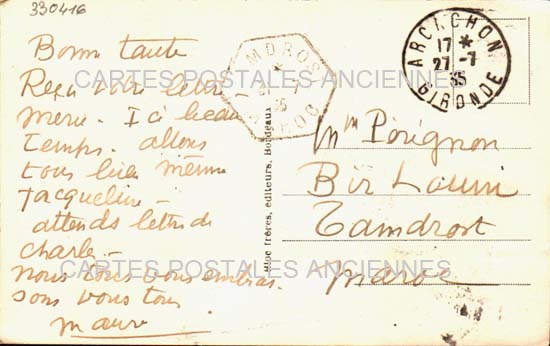 330416
Bonne tante
Reçu votre lettre
merci. Ici beau
temps. allons
tous bien même
Jacqueline -
attends lettre de
charles -
nous tous vous embras-
sons vous tous
Bloc frères, editeurs, Bordeaux
ARCACHON
17 *
27 -7
35
GIRONDE
Mme Pérignon
Bir Louiri
Tamdrost
maroc
CARTES POSTALES ANCIENNES
CARTES POSTALES ANCIENNES